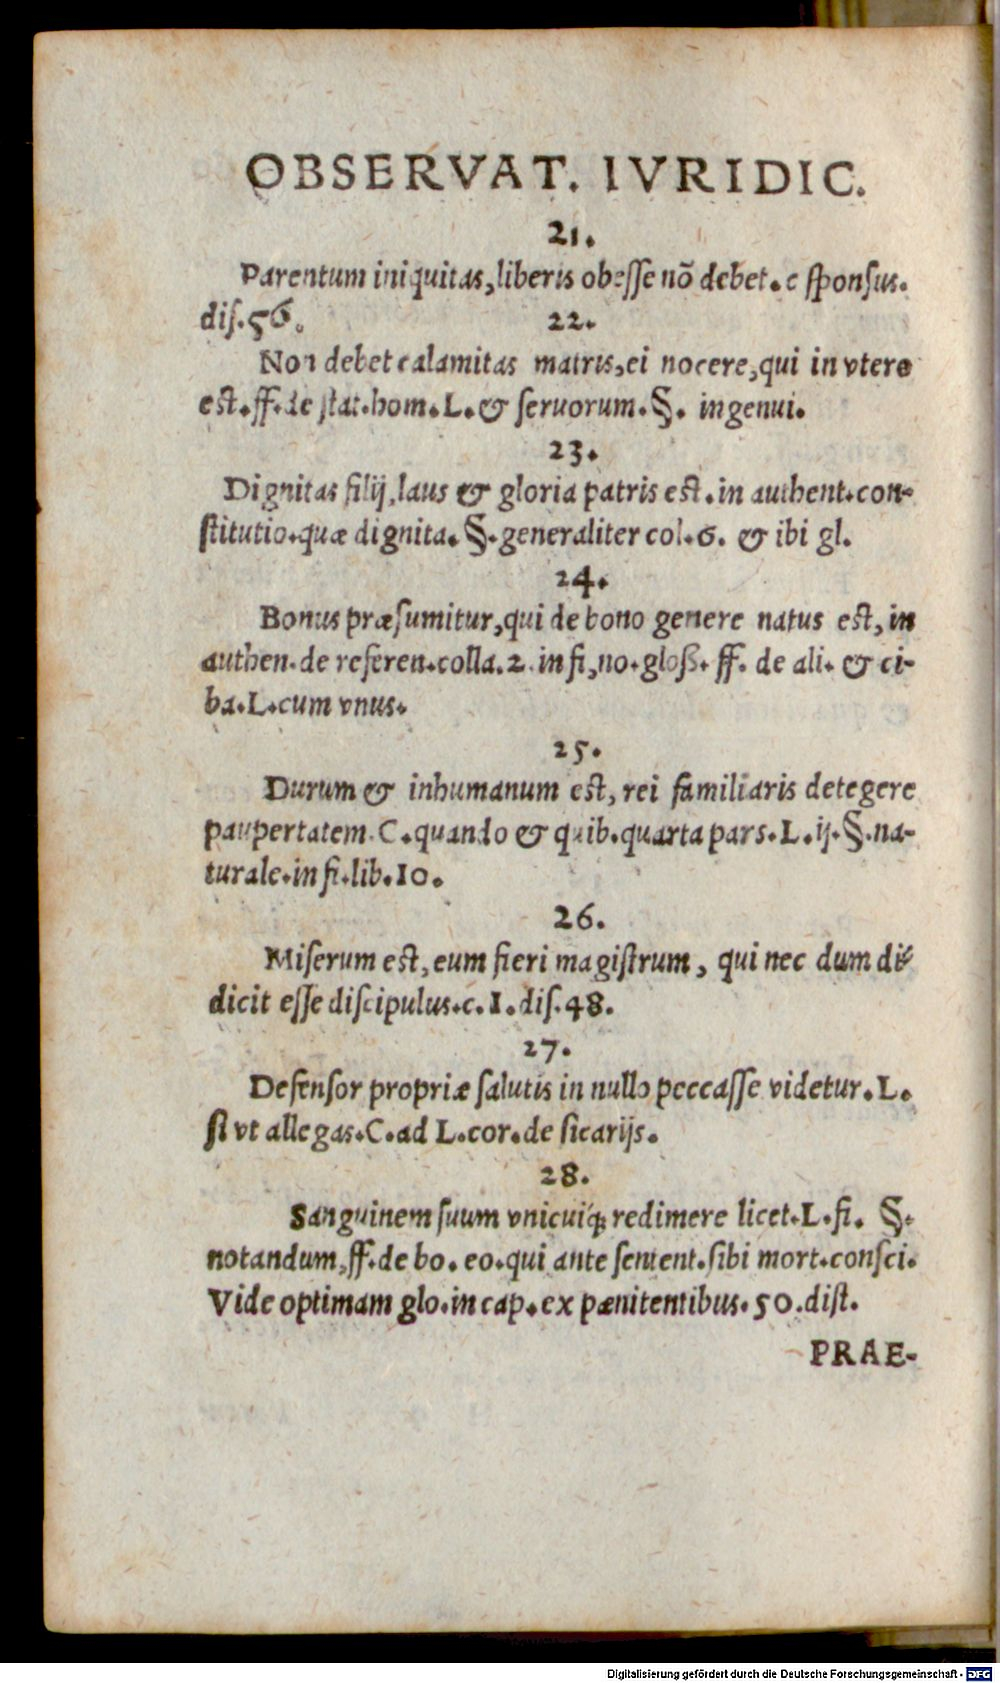 OBSERVAT. IVRIDIC.
21.
Parentum iniquitas, liberis obesse nō debet. c sponsus.
dis. 56.
22.
Non debet calamitas matris, ei nocere, qui in vtero
est. ff. de stat. hom. L. & seruorum. §. ingenui.
23.
Dignitas filij, laus & gloria patris est. in authent. con-
stitutio. quæ dignita. §. generaliter col. 6. & ibi gl.
24.
Bonus præsumitur, qui de bono genere natus est, in
authen. de referen. colla. 2. in fi, no. gloß. ff. de ali. & ci-
ba. L. cum vnus.
25.
Durum & inhumanum est, rei familiaris detegere
paupertatem. C. quando & quib. quarta pars. L. ij. §. na-
turale. in fi. lib. 10.
26.
Miserum est, eum fieri magistrum, qui nec dum di-
dicit esse discipulus. c. 1. dis. 48.
27.
Defensor propriæ salutis in nullo peccasse videtur. L.
si vt allegas. C. ad L. cor. de sicarijs.
28.
Sanguinem suum vnicuiq; redimere licet. L. fi. §.
notandum, ff. de bo. eo. qui ante sentent. sibi mort. consci.
Vide optimam glo. in cap. ex pænitentibus. 50. dist.
PRAE-
Digitalisierung gefördert durch die Deutsche Forschungsgemeinschaft - DFG